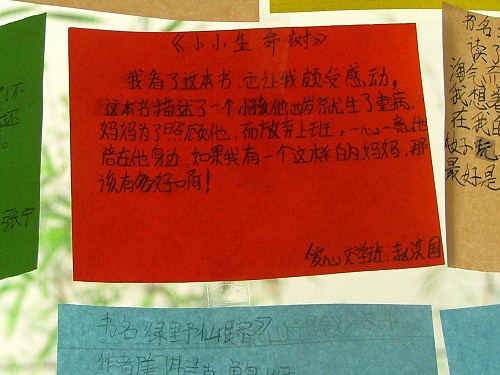 《小小生命树》
我看了这本书,它让我颇受感动,
这本书描述了一个小孩他四岁就生了重病,
妈妈为了照顾他,而放弃上班,一心一意地
陪在他身边,如果我有一个这样的妈妈,那
该有多好啊!
爱心文学班:赵洪国
张宁
书名:
读了
淘气
我想
在我的
好子玩
最好是
书名《绿野仙踪》
作者:美